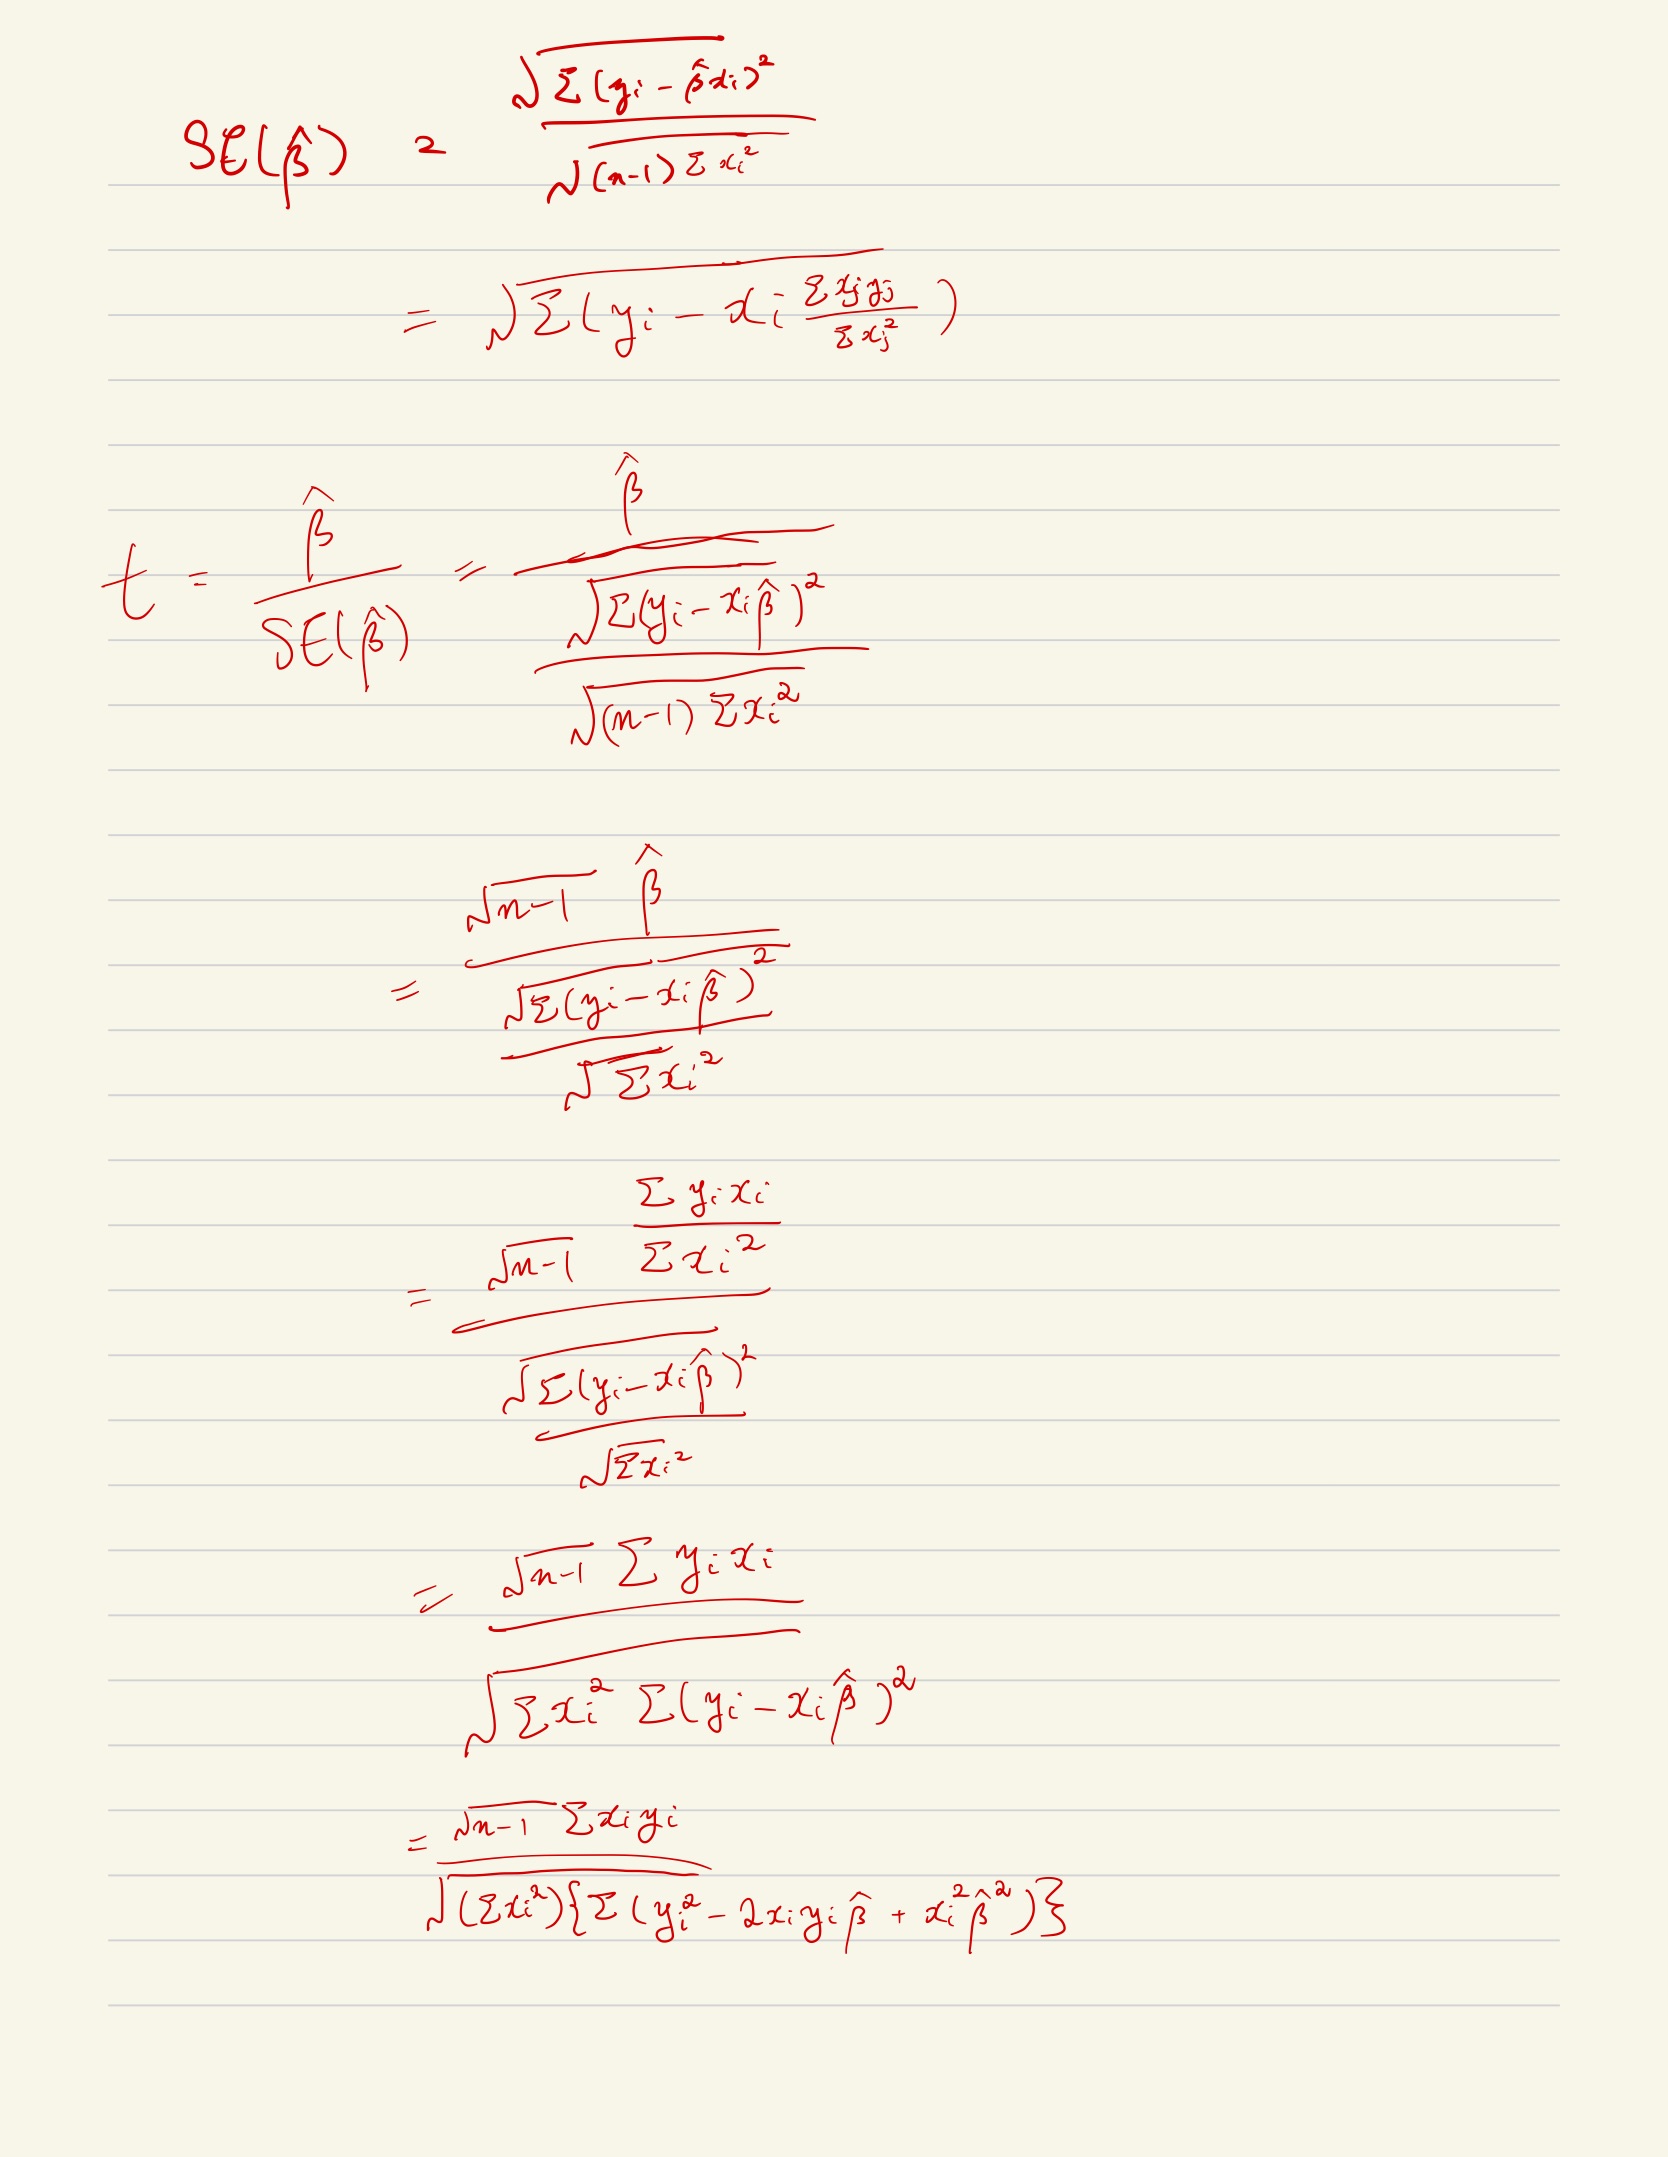 SE(β̂) = √Σ(yi - β̂xi)² / √(n-1) Σxi²
= √Σ(yi - xi Σxjyj / Σxj²)
t = β̂ / SE(β̂) = β̂ / (√Σ(yi - xiβ̂)² / √(n-1) Σxi²)
= √n-1 β̂ / (√Σ(yi - xiβ̂)² / √Σxi²)
= √n-1 (Σyixi / Σxi²) / (√Σ(yi - xiβ̂)² / √Σxi²)
= √n-1 Σyixi / √Σxi² Σ(yi - xiβ̂)²
= √n-1 Σxiyi / √(Σxi²){Σ(yi² - 2xiyiβ̂ + xi²β̂²)}